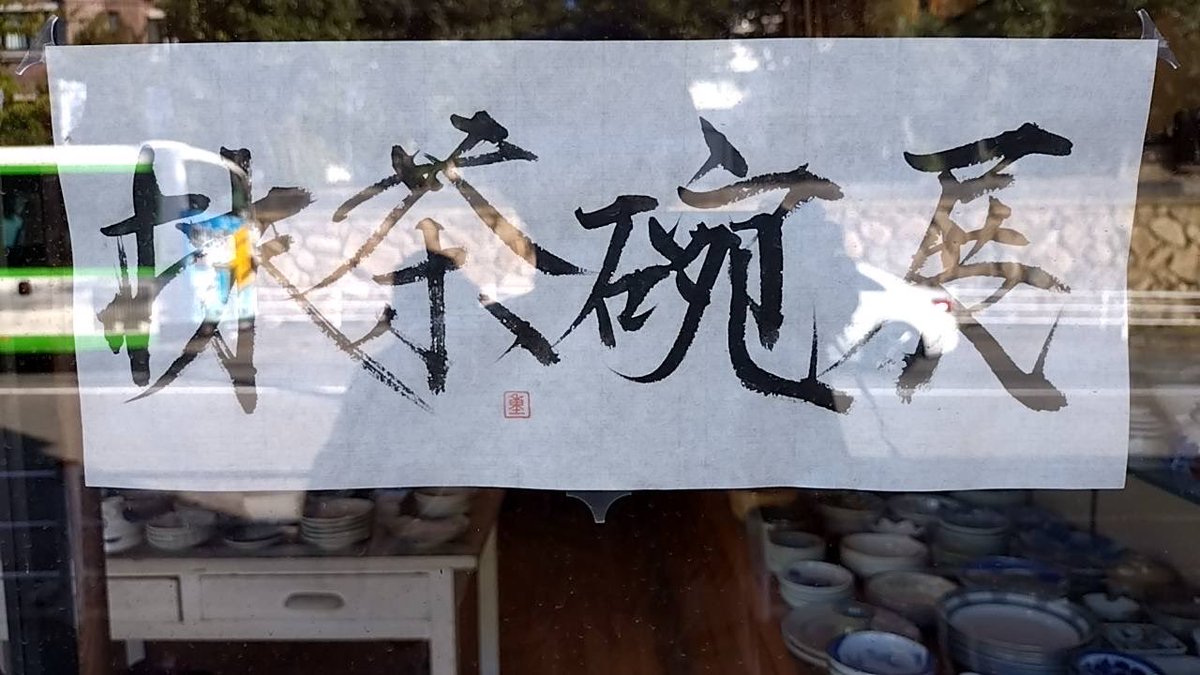 抹茶碗展